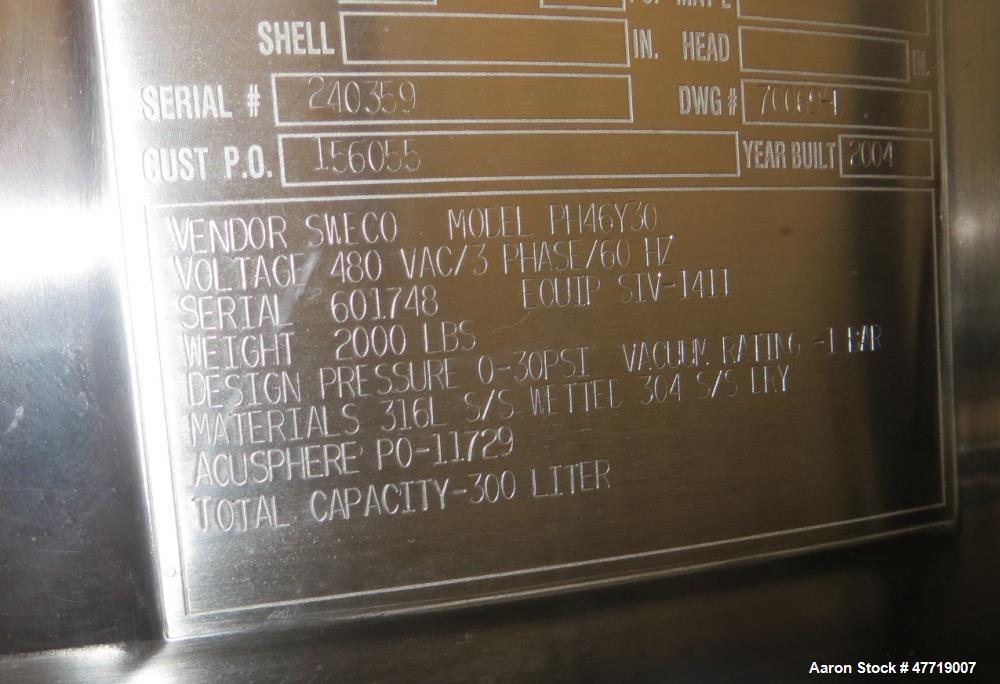 SHELL IN. HEAD IN.
SERIAL # 240359 DWG #
CUST P.O. 156055 YEAR BUILT 2004
VENDOR SWECO MODEL PH46Y30
VOLTAGE 480 VAC/3 PHASE/60 HZ
SERIAL 601748 EQUIP SIV-1411
WEIGHT 2000 LBS
DESIGN PRESSURE 0-30PSI VACUUM RATING -1 BAR
MATERIALS 316L S/S WETTED 304 S/S DRY
ACUSPHERE PO-11729
TOTAL CAPACITY-300 LITER
Aaron Stock # 47719007